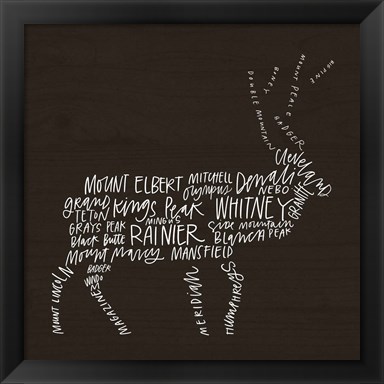 ALPINE
MOUNT PEALE
BINEY
DOUBLE MOUNTAIN
BADGER
Cleveland
MOUNT ELBERT
MITCHELL
Denali
olympus
NEBO
GRANITE
grand
TETON
Kings Peak
WHITNEY
MINGUS
GRAYS PEAK
RAINIER
Side mountain
Black Butte
Blanca PEAK
Mount Marcy
MANSFIELD
BADGER
MOUNT LINCOLN
MAGAZINE
MERIDIAN
Humphreys